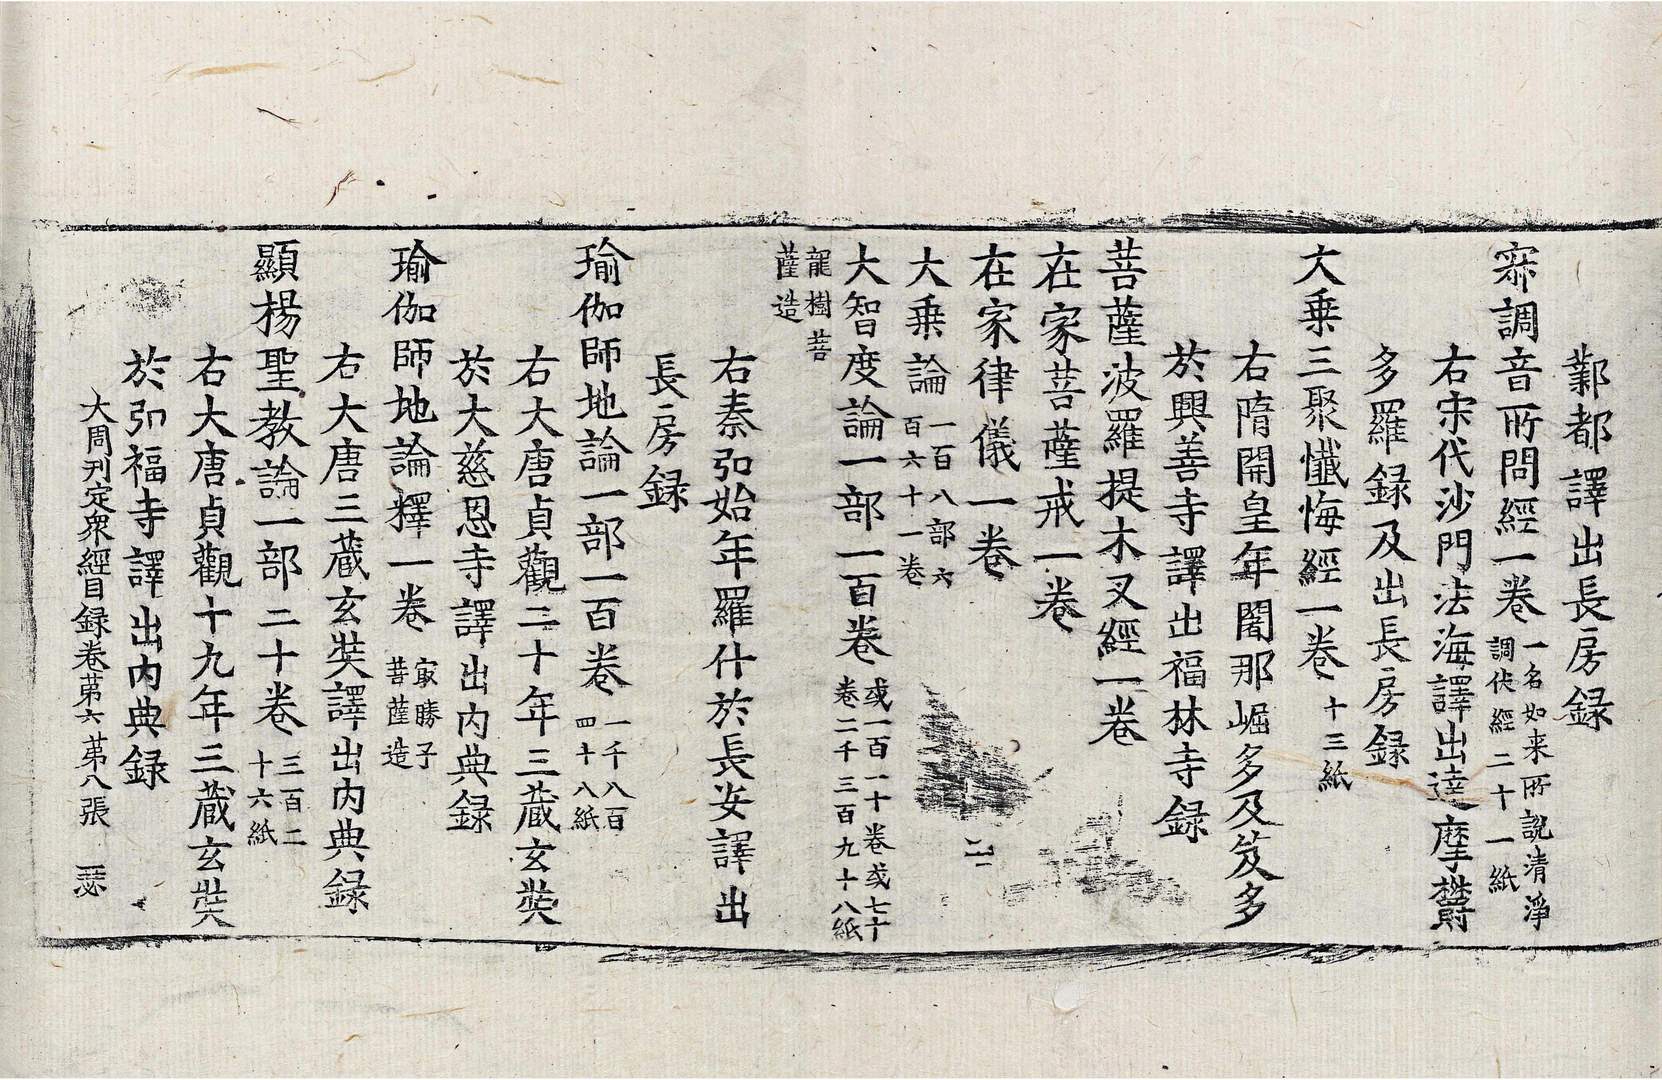 鄴都譯出長房録
寂調音所問經一卷 一名如来所說清淨調伏經二十一紙
右宋代沙門法海譯出達摩欝
多羅録及出長房録
大乗三聚懺悔經一卷 十三紙
右隋開皇年闍那崛多及笈多
於興善寺譯出福林寺録
菩薩波羅提木叉經一卷
在家菩薩戒一卷
在家律儀一卷
大乗論 一百八部六百六十一卷
大智度論一部一百卷 或一百一十卷或七十卷二千三百九十八紙
龍樹菩薩造
右秦弘始年羅什於長安譯出
長房録
瑜伽師地論一部一百卷 一千八百四十八紙
右大唐貞觀二十年三藏玄奘
於大慈恩寺譯出内典録
瑜伽師地論釋一卷 冣勝子菩薩造
右大唐三藏玄奘譯出内典録
顯揚聖教論一部二十卷 三百二十六紙
右大唐貞觀十九年三藏玄奘
於弘福寺譯出内典録
大周刊定衆經目録卷第六 苐八張 瑟